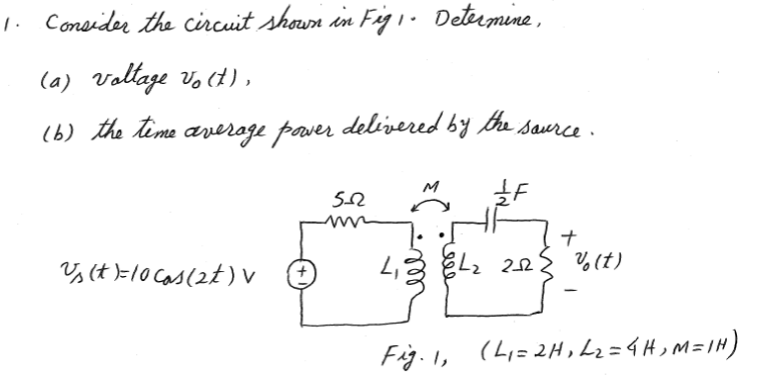 1. Consider the circuit shown in Fig 1. Determine,
(a) voltage v₀(t),
(b) the time average power delivered by the source.
5Ω
M
½F
v_s(t)=10 cos(2t) V
+
-
L₁
L₂
2Ω
+
v₀(t)
-
Fig. 1, (L₁=2H, L₂=4H, M=1H)